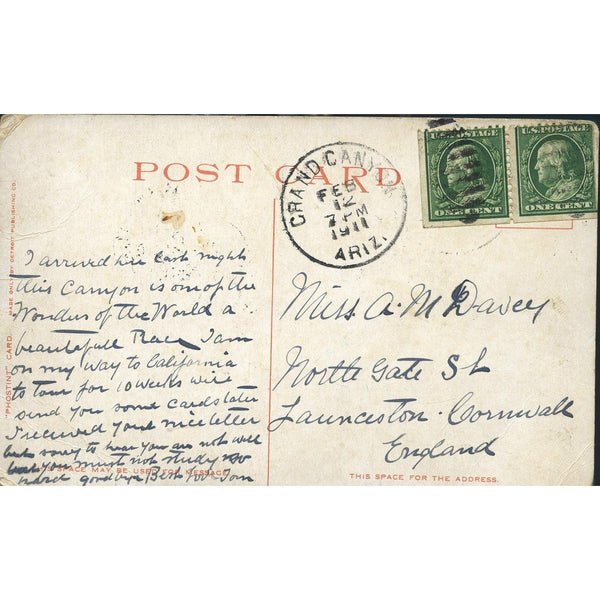 POST CARD
GRAND CANYON
FEB
12
7 PM
1911
ARIZ.
U.S. POSTAGE
ONE CENT
U.S. POSTAGE
ONE CENT
"PHOSTINT" CARD. MADE ONLY BY DETROIT PUBLISHING CO.
I arrived here last night
this Canyon is one of the
Wonders of the World a
beautefull Place I am
on my way to California
to tour for 10 weeks will
send you some cards later
I received your nice letter
but sorry to hear you are not well
but you must not study so
hard goodbye Best love Tom
THIS SPACE MAY BE USED FOR MESSAGE.
Miss A. M Davey
North Gate St
Launceston. Cornwall
England
THIS SPACE FOR THE ADDRESS.